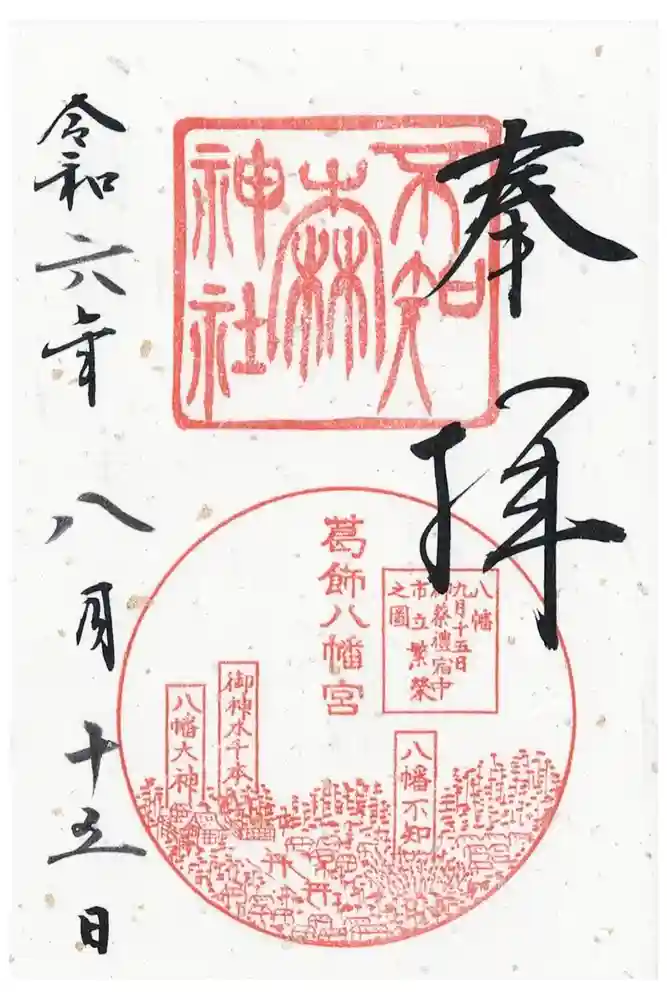 奉拝
不知
森
神社
葛飾八幡宮
八幡
九月十五日
祭禮宿中
市立繁榮
之圖
八幡不知
御神水千本
八幡大神
令和六年八月十五日